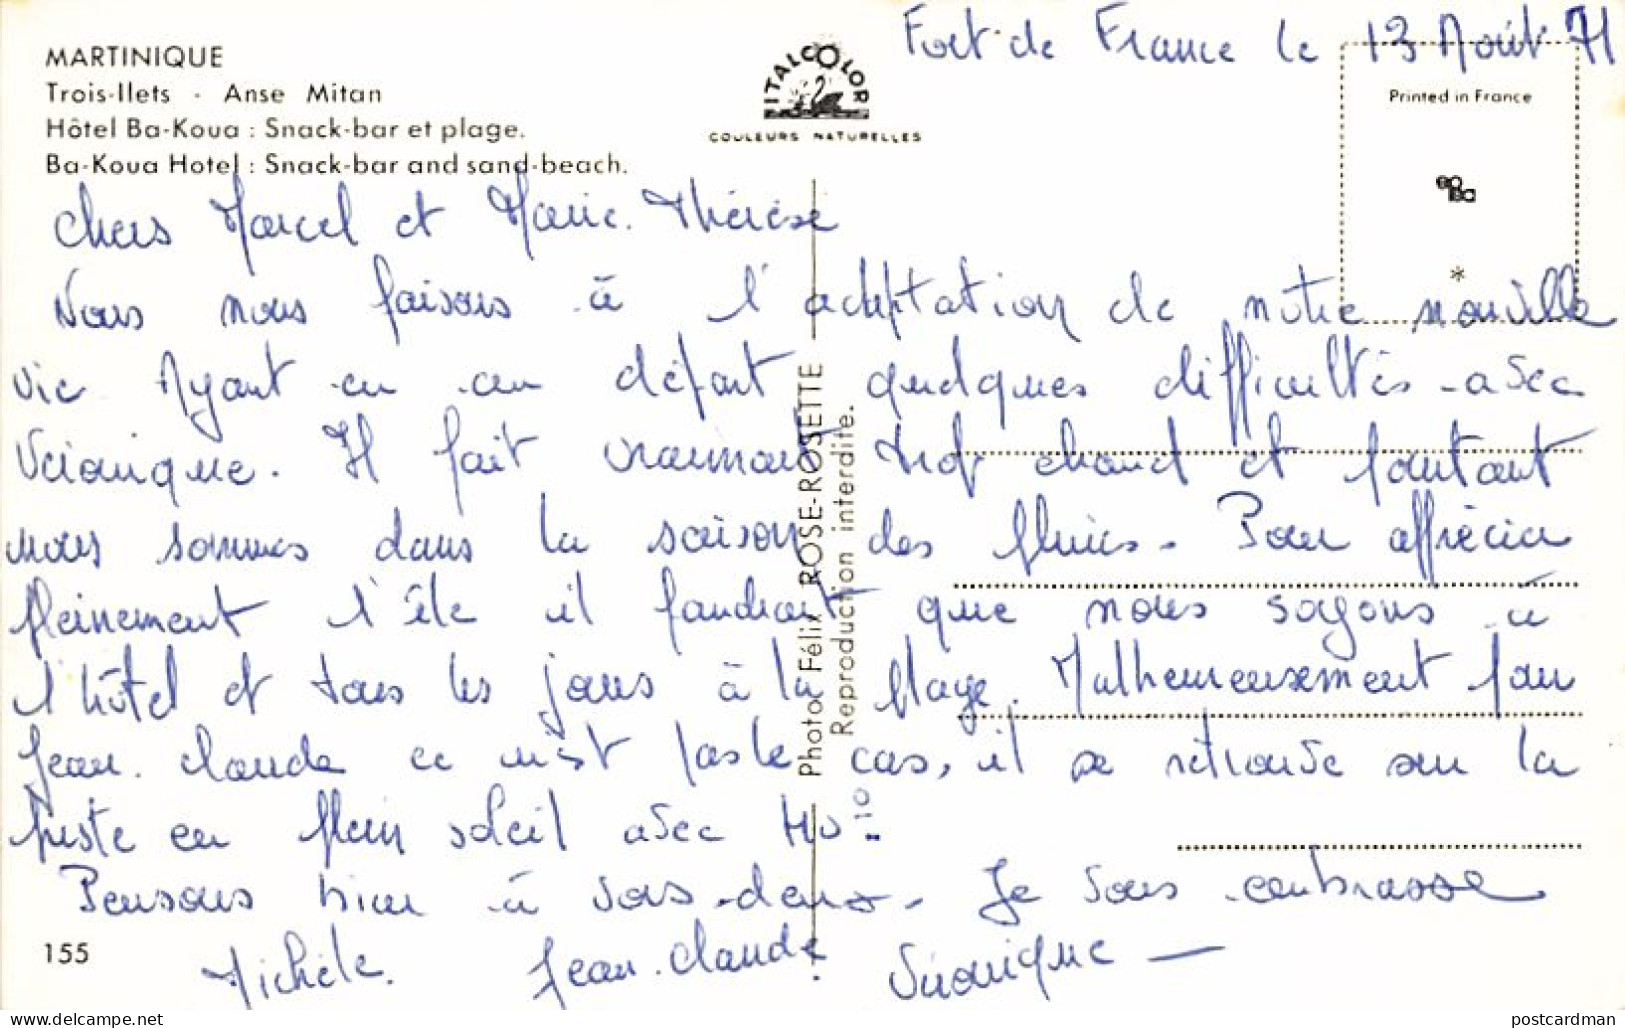 Fort de France le 13 Août 71
MARTINIQUE
Trois-Ilets - Anse Mitan
Hôtel Ba-Koua : Snack-bar et plage.
Ba-Koua Hotel : Snack-bar and sand-beach.
ITALCOLOR
COULEURS NATURELLES
Printed in France
*
Chers Marcel et Marie-Thérèse
Nous nous faisons à l'adaptation de notre nouvelle
vie Ayant eu au départ quelques difficultés avec
Véronique. Il fait vraiment trop chaud et pourtant
nous sommes dans la saison des pluies. Pour apprécier
pleinement l'île il faudrait que nous soyons à
l'hôtel et tous les jours à la plage. Malheureusement pour
Jean-Claude ce n'est pas le cas, il se retrouve sur la
piste en plein soleil avec 40°.
Pensons bien à vous deux. Je vous embrasse
Michèle. Jean-Claude. Véronique
Photo Félix ROSE-ROSETTE
Reproduction interdite.
155
delcampe.net
postcardman